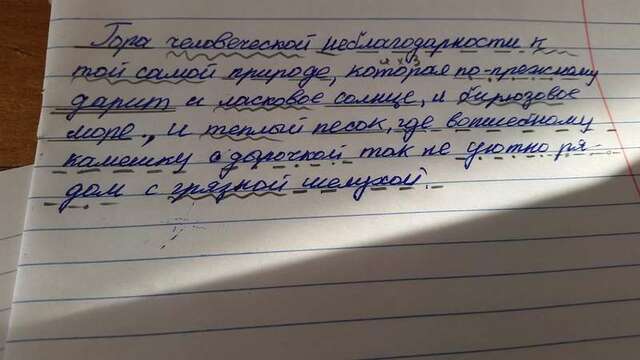 Гора человеческой неблагодарности к
той самой природе, которая по-прежнему
дарит и ласковое солнце, и бирюзовое
море, и теплый песок, где волшебному
камешку с дырочкой так не уютно ря-
дом с грязной шелухой.